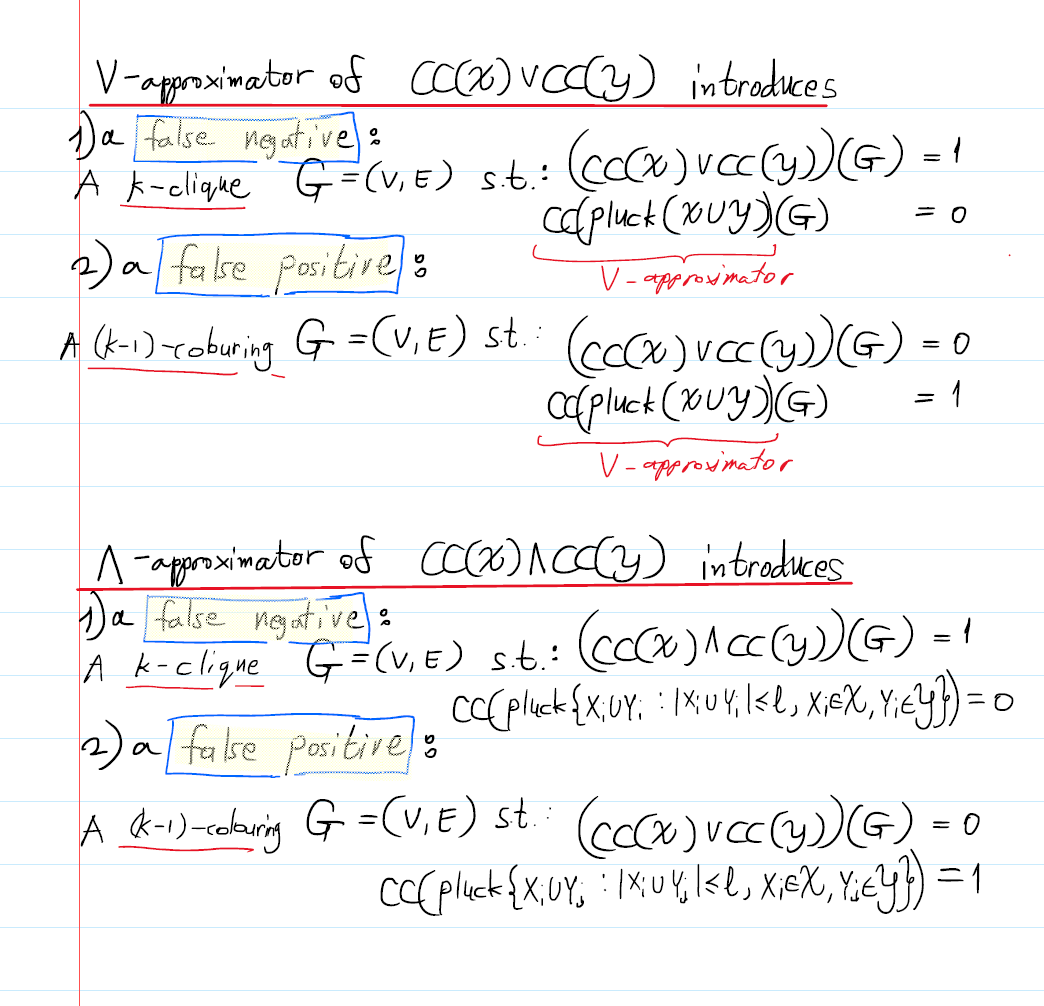 V-approximator of CC(X)∨CC(Y) introduces
1) a false negative :
A k-clique G=(V,E) s.t.: (CC(X)∨CC(Y))(G) = 1
CC(pluck(X∪Y))(G) = 0
V-approximator
2) a false positive :
A (k-1)-colouring G=(V,E) s.t.: (CC(X)∨CC(Y))(G) = 0
CC(pluck(X∪Y))(G) = 1
V-approximator
Λ-approximator of CC(X)∧CC(Y) introduces
1) a false negative :
A k-clique G=(V,E) s.t.: (CC(X)∧CC(Y))(G) = 1
CC(pluck{Xᵢ∪Yⱼ : |Xᵢ∪Yⱼ|≤l, Xᵢ∈X, Yⱼ∈Y}) = 0
2) a false positive :
A (k-1)-colouring G=(V,E) s.t.: (CC(X)∨CC(Y))(G) = 0
CC(pluck{Xᵢ∪Yⱼ : |Xᵢ∪Yⱼ|≤l, Xᵢ∈X, Yⱼ∈Y}) = 1